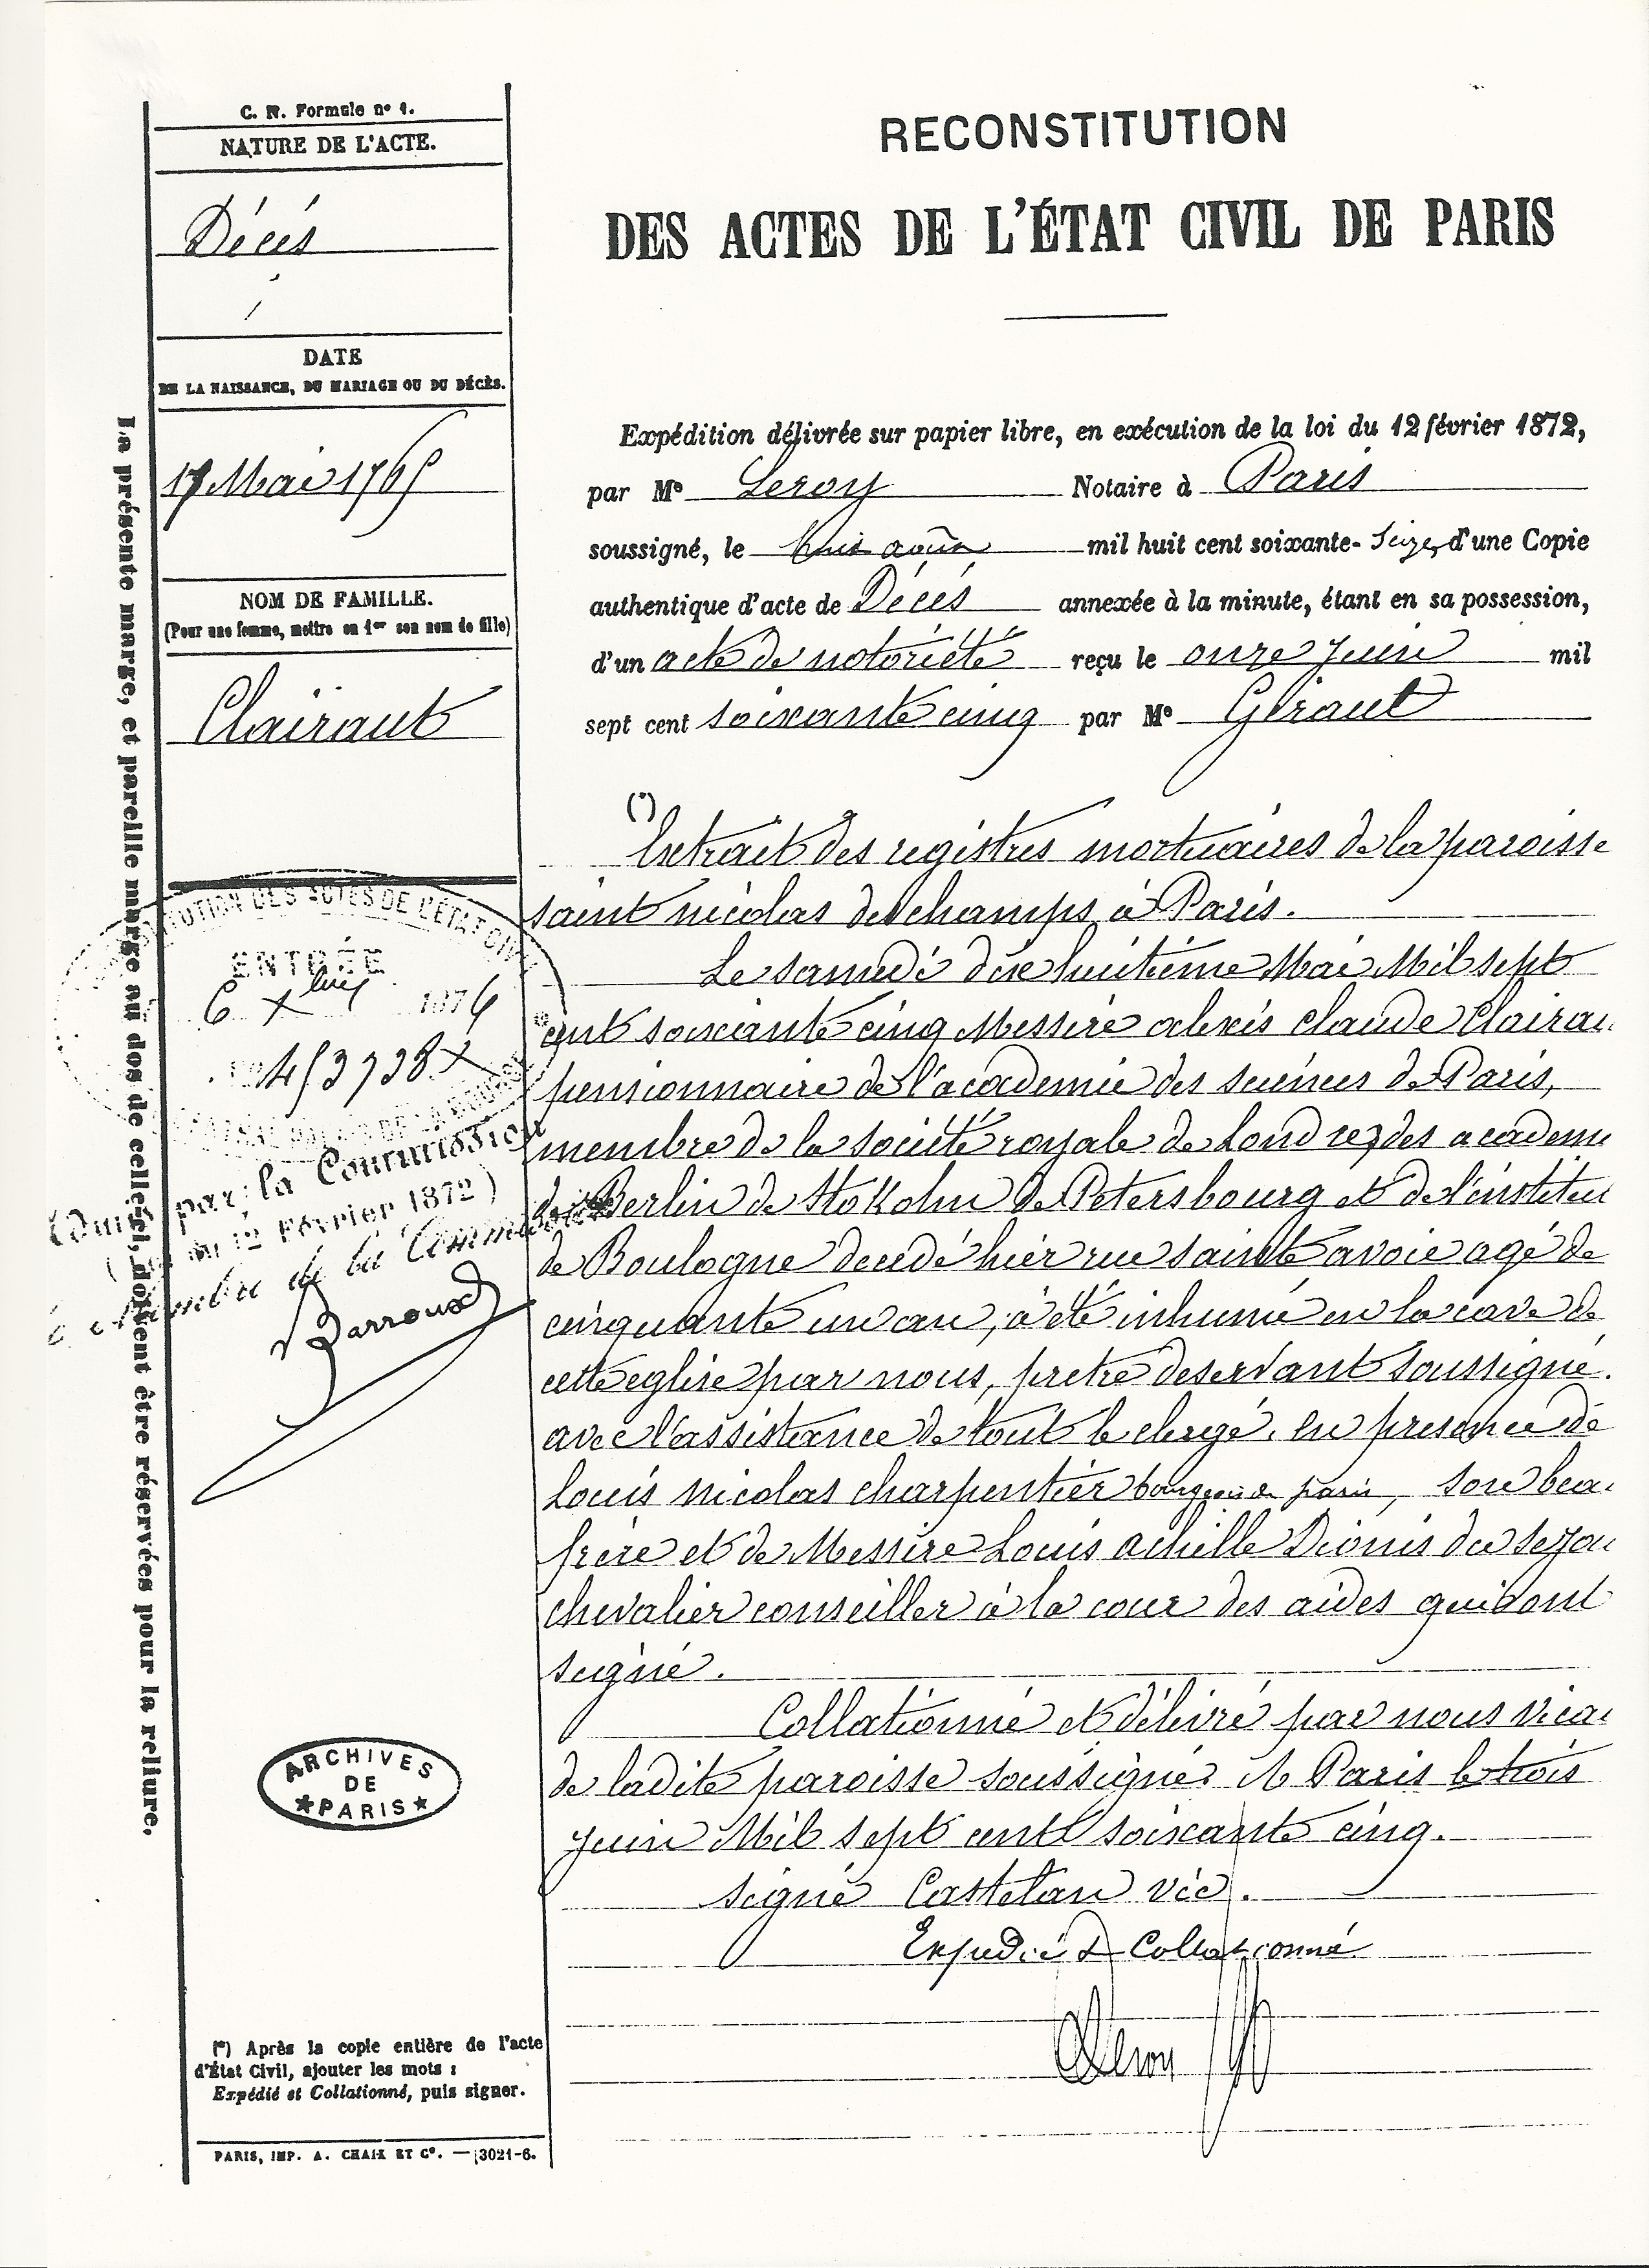 C. N. Formule nº 1.
NATURE DE L'ACTE.
Décés
DATE
DE LA NAISSANCE, DU MARIAGE OU DU DÉCÈS.
17 Mai 1765
NOM DE FAMILLE.
(Pour une femme, mettre en 1er son nom de fille)
Clairaut
La présente marge, et pareille marge au dos de celle-ci, doivent être réservées pour la reliure.
RECONSTITUTION
DES ACTES DE L'ÉTAT CIVIL DE PARIS
Expédition délivrée sur papier libre, en exécution de la loi du 12 février 1872,
par Me Leroy Notaire à Paris
soussigné, le huit août mil huit cent soixante-Seize, d'une Copie
authentique d'acte de Décés annexée à la minute, étant en sa possession,
d'un acte de notoriété reçu le onze Juin mil
sept cent soixante cinq par Me Giraut
(*)
Extrait des registres mortuaires de la paroisse
saint nicolas des champs à Paris.
Le samedi dix huitieme Mai Mil sept
cent soixante cinq Messire alexis claude Clairau
pensionnaire de l'academie des sciences de Paris,
membre de la société royale de Londrez, des academi
de Berlin de Stokolm de Petersbourg et de l'institu
de Boulogne decedé hier rue sainte avoie agé de
cinquante un an, à été inhumé en la cave de
cette eglise par nous, pretre deservant soussigné.
avec l'assistance de tout le clergé, en presence de
Louis nicolas charpentier bourgeois de paris, son beau
frère et de Messire Louis achille Dionis du Sejou
chevalier conseiller à la cour des aides qui ont
signé.
Collationné et délivré par nous vicai
de ladite paroisse soussigné. A Paris le trois
Juin Mil sept cent soixante cinq.
signé Castelan vic.
Expedié & Collationné
Leroy
UTION DES ACTES DE L'ÉTAT CIVIL
ENTRÉE
6 Xbre 1876
453738
par la Commission
Février 1872)
membre de la Commission
Barroux
ARCHIVES
DE
★ PARIS ★
(*) Après la copie entière de l'acte
d'État Civil, ajouter les mots :
Expédié et Collationné, puis signer.
PARIS, IMP. A. CHAIX ET Cº. — 13021-6.